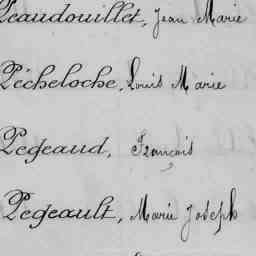 Peaudouillet, Jean Marie
Pécheloche, Louis Marie
Pegeaud, François
Pegeault, Marie Joseph